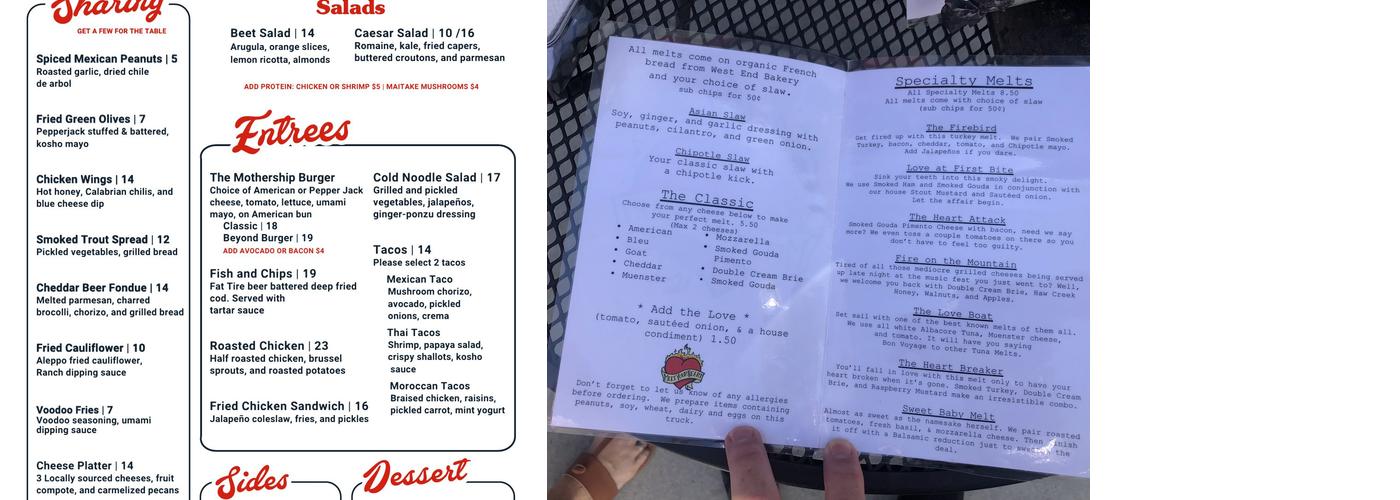 Sharing
GET A FEW FOR THE TABLE
Spiced Mexican Peanuts | 5
Roasted garlic, dried chile
de arbol
Fried Green Olives | 7
Pepperjack stuffed & battered,
kosho mayo
Chicken Wings | 14
Hot honey, Calabrian chilis, and
blue cheese dip
Smoked Trout Spread | 12
Pickled vegetables, grilled bread
Cheddar Beer Fondue | 14
Melted parmesan, charred
brocolli, chorizo, and grilled bread
Fried Cauliflower | 10
Aleppo fried cauliflower,
Ranch dipping sauce
Voodoo Fries | 7
Voodoo seasoning, umami
dipping sauce
Cheese Platter | 14
3 Locally sourced cheeses, fruit
compote, and carmelized pecans
Salads
Beet Salad | 14
Arugula, orange slices,
lemon ricotta, almonds
Caesar Salad | 10 /16
Romaine, kale, fried capers,
buttered croutons, and parmesan
ADD PROTEIN: CHICKEN OR SHRIMP $5 | MAITAKE MUSHROOMS $4
Entrees
The Mothership Burger
Choice of American or Pepper Jack
cheese, tomato, lettuce, umami
mayo, on American bun
Classic | 18
Beyond Burger | 19
ADD AVOCADO OR BACON $4
Fish and Chips | 19
Fat Tire beer battered deep fried
cod. Served with
tartar sauce
Roasted Chicken | 23
Half roasted chicken, brussel
sprouts, and roasted potatoes
Fried Chicken Sandwich | 16
Jalapeño coleslaw, fries, and pickles
Cold Noodle Salad | 17
Grilled and pickled
vegetables, jalapeños,
ginger-ponzu dressing
Tacos | 14
Please select 2 tacos
Mexican Taco
Mushroom chorizo,
avocado, pickled
onions, crema
Thai Tacos
Shrimp, papaya salad,
crispy shallots, kosho
sauce
Moroccan Tacos
Braised chicken, raisins,
pickled carrot, mint yogurt
Sides
Dessert
All melts come on organic French
bread from West End Bakery
and your choice of slaw.
sub chips for 50¢
Asian Slaw
Soy, ginger, and garlic dressing with
peanuts, cilantro, and green onion.
Chipotle Slaw
Your classic slaw with
a chipotle kick.
The Classic
Choose from any cheese below to make
your perfect melt. 5.50
(Max 2 cheeses)
• American
• Bleu
• Goat
• Cheddar
• Muenster
• Mozzarella
• Smoked Gouda
Pimento
• Double Cream Brie
• Smoked Gouda
* Add the Love *
(tomato, sautéed onion, & a house
condiment) 1.50
Don't forget to let us know of any allergies
before ordering. We prepare items containing
peanuts, soy, wheat, dairy and eggs on this
truck.
Specialty Melts
All Specialty Melts 8.50
All melts come with choice of slaw
(sub chips for 50¢)
The Firebird
Get fired up with this turkey melt. We pair Smoked
Turkey, bacon, cheddar, tomato, and Chipotle mayo.
Add Jalapeños if you dare.
Love at First Bite
Sink your teeth into this smoky delight.
We use Smoked Ham and Smoked Gouda in conjunction with
our house Stout Mustard and Sautéed onion.
Let the affair begin.
The Heart Attack
Smoked Gouda Pimento Cheese with bacon, need we say
more? We even toss a couple tomatoes on there so you
don't have to feel too guilty.
Fire on the Mountain
Tired of all those mediocre grilled cheeses being served
up late night at the music fest you just went to? Well,
we welcome you back with Double Cream Brie, Haw Creek
Honey, Walnuts, and Apples.
The Love Boat
Set sail with one of the best known melts of them all.
We use all white Albacore Tuna, Muenster cheese,
and tomato. It will have you saying
Bon Voyage to other Tuna Melts.
The Heart Breaker
You'll fall in love with this melt only to have your
heart broken when it's gone. Smoked Turkey, Double Cream
Brie, and Raspberry Mustard make an irresistible combo.
Sweet Baby Melt
Almost as sweet as the namesake herself. We pair roasted
tomatoes, fresh basil, & mozzarella cheese. Then finish
it off with a Balsamic reduction just to the
deal.